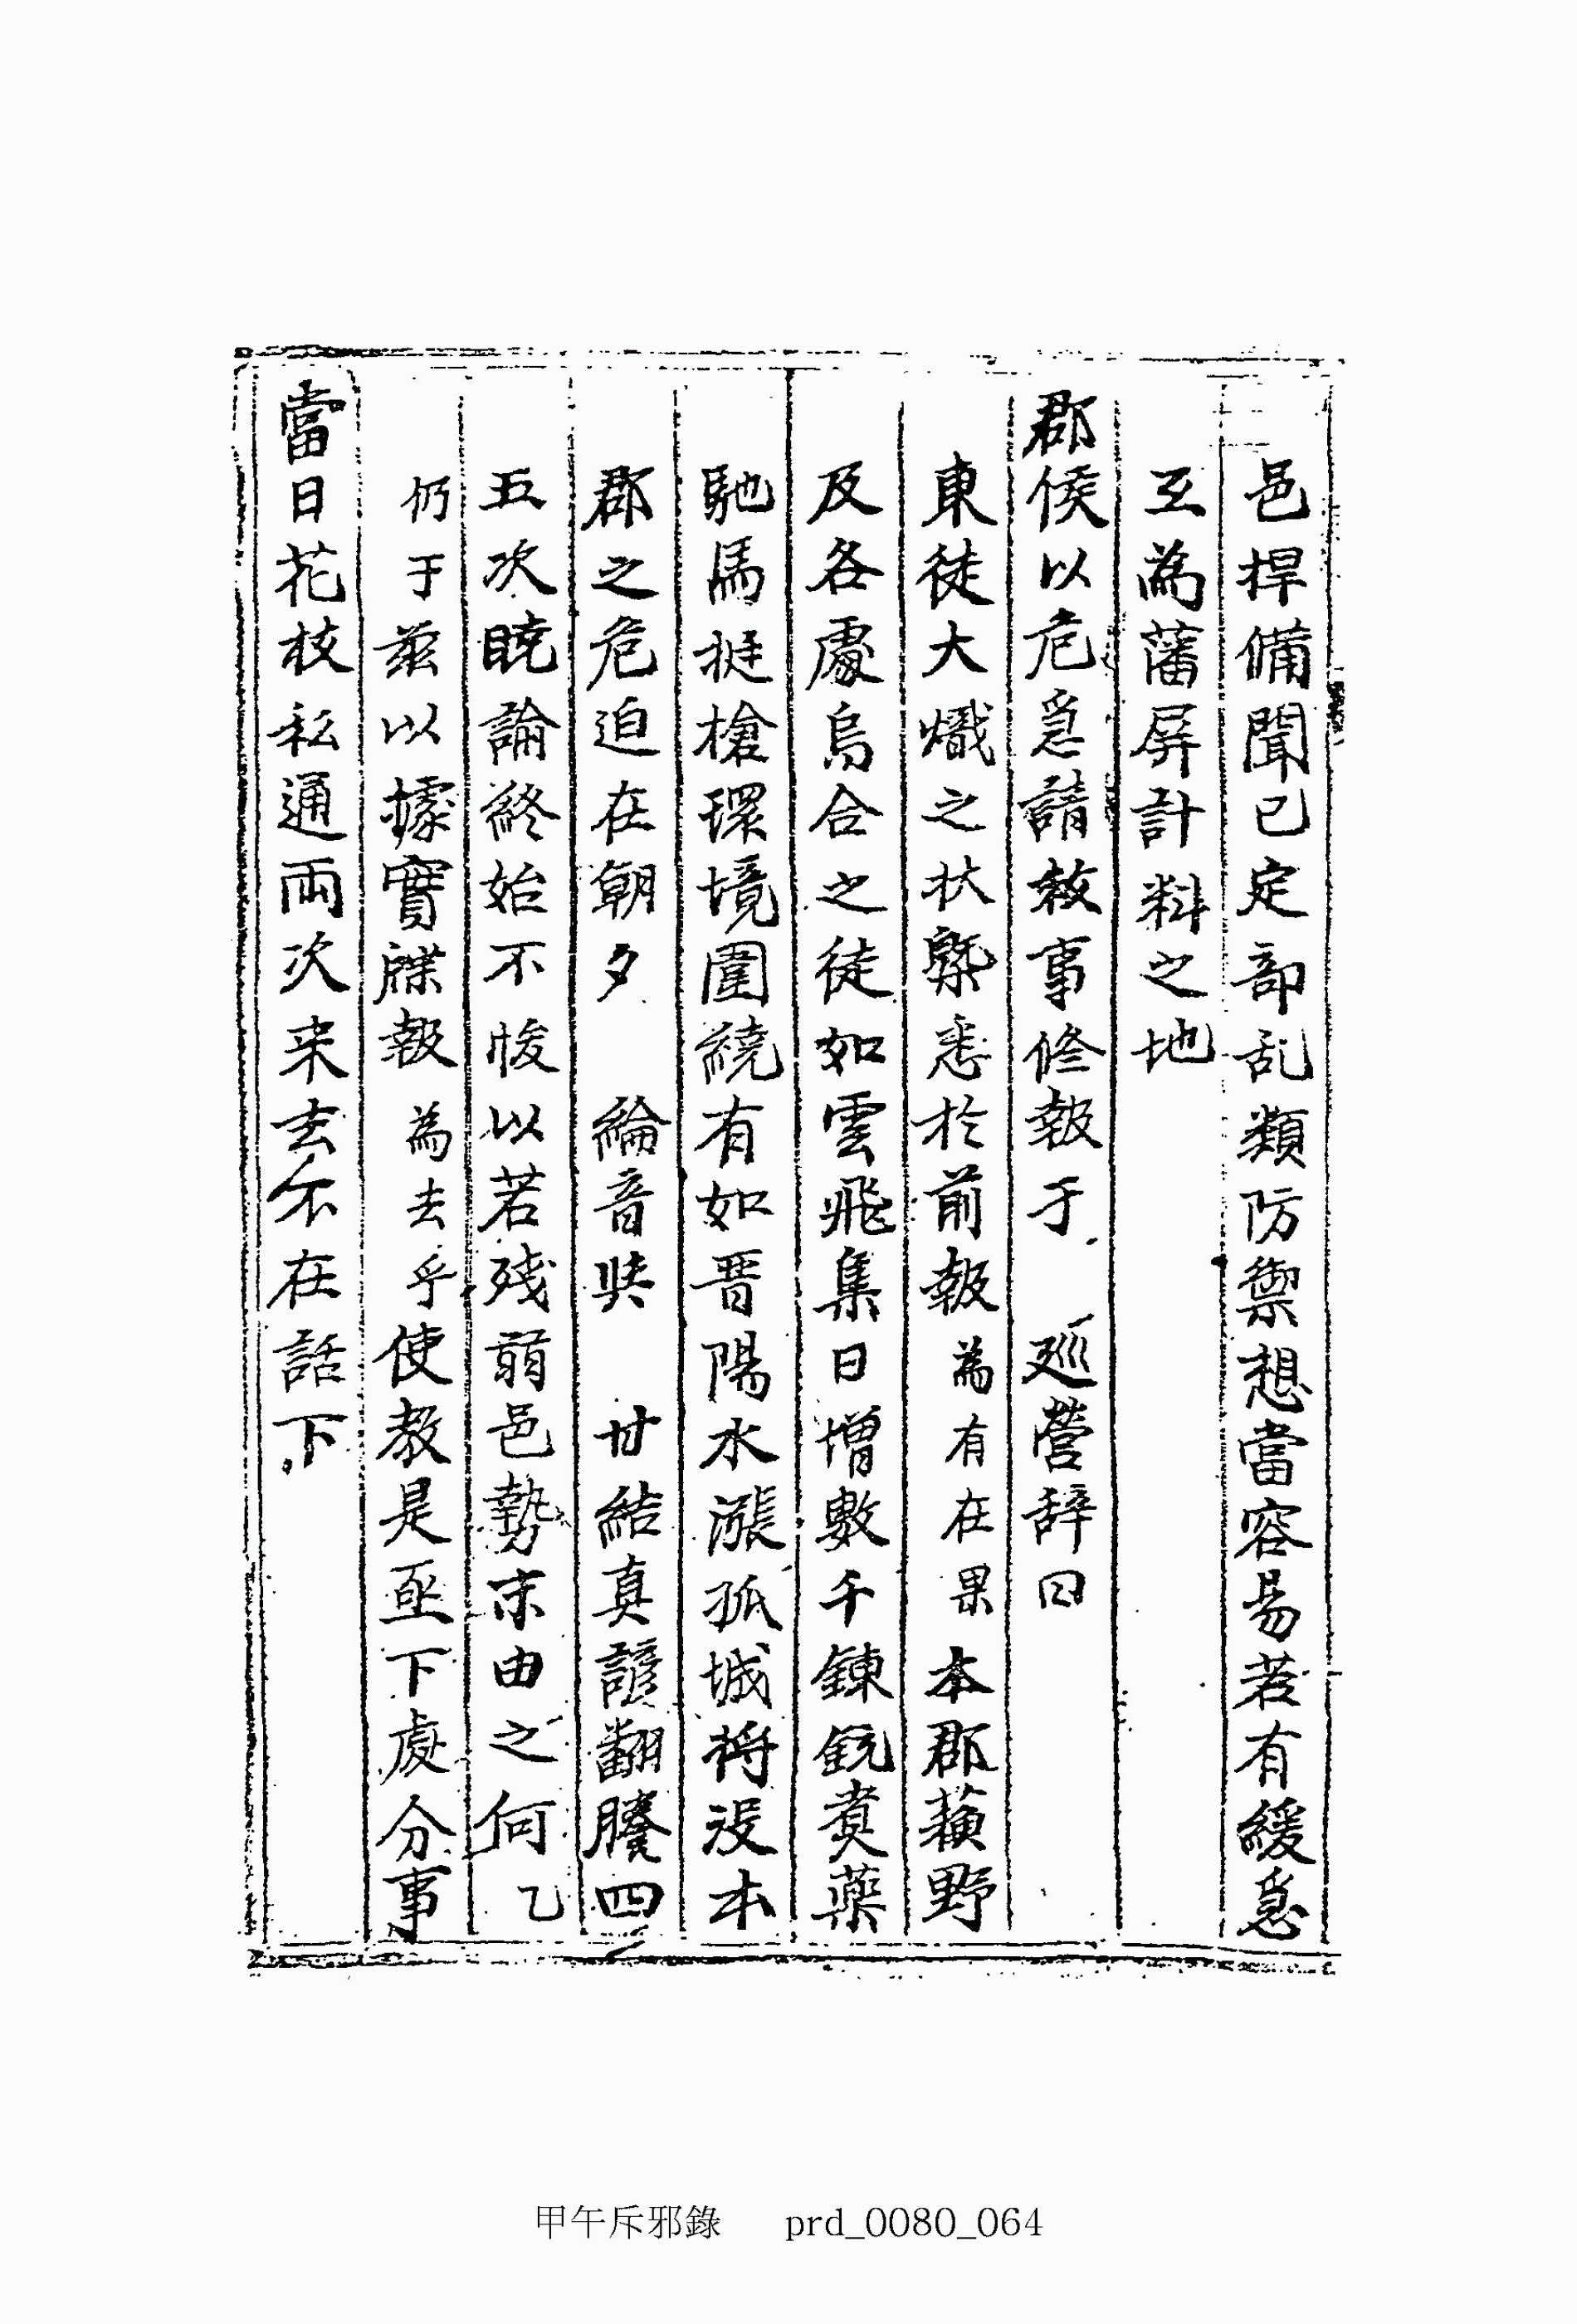 邑捍備聞已定部乱類防禦想當容易若有緩急
互為藩屏計料之地
郡侯以危急請救事修報于 廵營辞曰
東徒大熾之状槩悉於前報為有在果本郡蘋野
及各處烏合之徒如雲飛集日增數千鍊銃煑藥
馳馬挺槍環境圍繞有如晋陽水漲孤城將沒本
郡之危迫在朝夕 綸音奘 甘結真諺翻謄四
五次曉論終始不悛以若残弱邑勢末由之何乙
仍于玆以據實牒報為去乎使教是亟下處分事
當日花校私通兩次来去不在話下
甲午斥邪錄 prd_0080_064